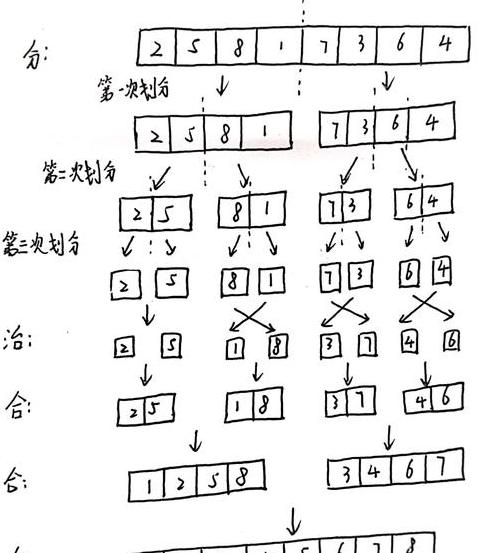 分: 2 5 8 1 7 3 6 4
第一次划分
2 5 8 1 7 3 6 4
第二次划分
2 5 8 1 7 3 6 4
第三次划分
2 5 8 1 7 3 6 4
治: 2 5 1 8 3 7 4 6
合: 2 5 1 8 3 7 4 6
合: 1 2 5 8 3 4 6 7
5 6 7 8